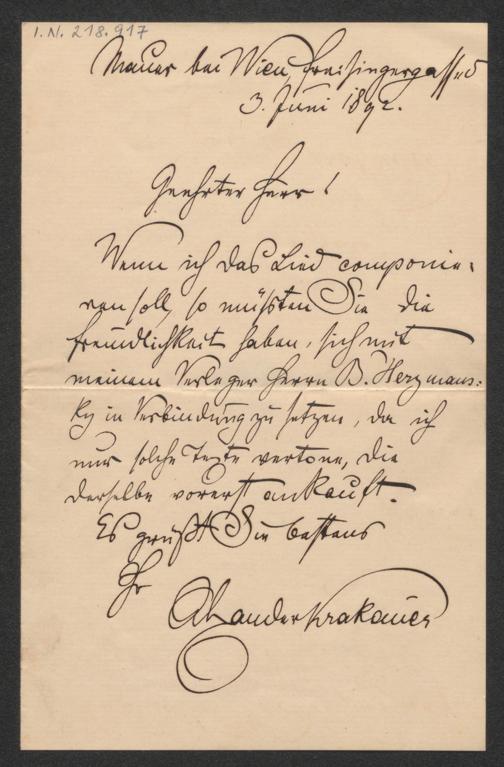 I. N. 218.917
Mauer bei Wien, Freisingergasse 5
3. Juni 1892.
Geehrter Herr!
Wenn ich das Lied componie-
ren soll, so müßten Sie die
Freundlichkeit haben, sich mit
meinem Verleger Herrn B. Herzmans-
ky in Verbindung zu setzen, da ich
nur solche Texte vertone, die
derselbe vorerst ankauft.
Es grüßt Sie bestens
Ihr
Alexander Krakauer